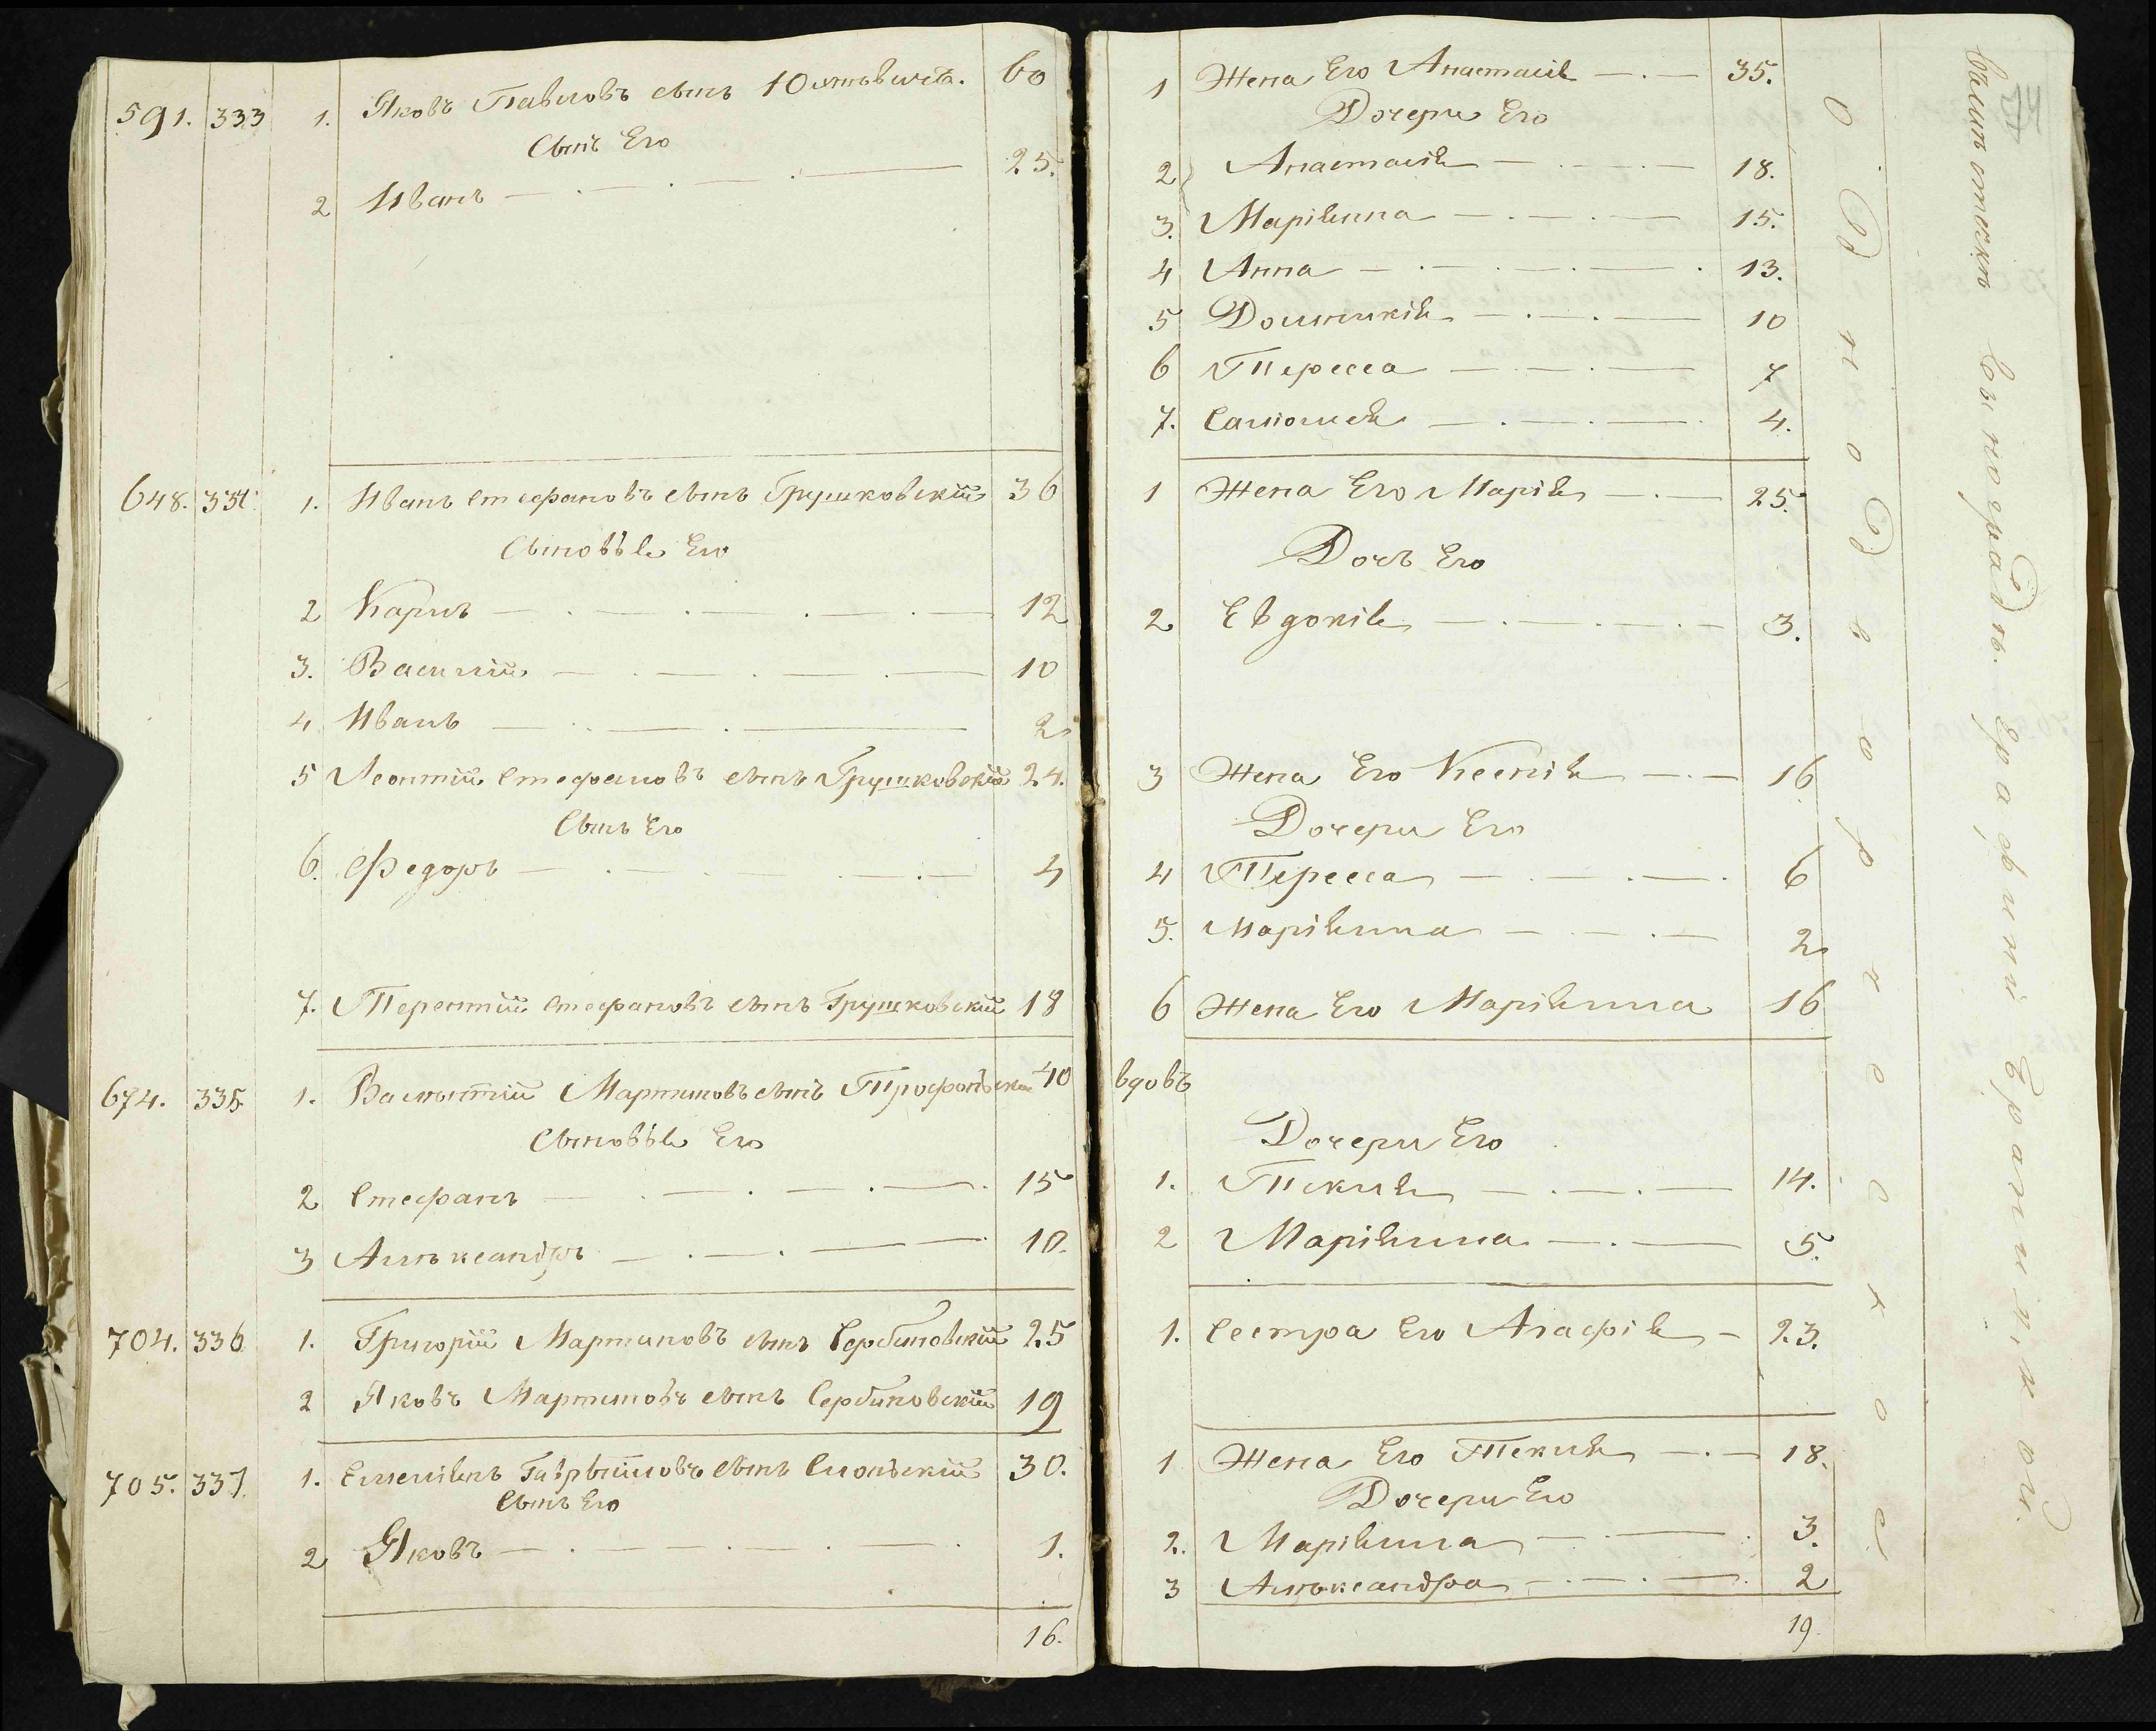 591. 333 1. Яковъ Павловъ сынъ 60
Сынъ Его
2 Иванъ 25.
648. 334. 1. Иванъ Стефановъ сынъ Грушковскій 36
Сыновья Его
2 Карпъ 12
3. Василій 10
4 Иванъ 2
5 Леонтій Стефановъ сынъ Грушковскій 24.
Сынъ Его
6. Федоръ 4
7. Терентій Стефановъ сынъ Грушковскій 18
674. 335. 1. Мартиновъ сынъ 40
Сыновья Его
2 Стефанъ 15
3 Алѣксандръ 10.
704. 336 1. Григорій Мартиновъ сынъ Сербиновскій 25
2 Яковъ Мартиновъ сынъ Сербиновскій 19
705. 337. 1. Емеліянъ сынъ 30.
Сынъ Его
2 Яковъ 1.
16.
1 Жена Его Анастасія 35.
Дочери Его
2 Анастасія 18.
3. Маріянна 15.
4 Анна 13.
5 Доминикія 10
6 Тересса 7
7. Саломея 4.
1 Жена Его Марія 25.
Дочь Его
2 Евдокія 3.
3 Жена Его Ксенія 16
Дочери Его
4 Тересса 6
5. Маріянна 2
6 Жена Его Маріянна 16
вдовъ
Дочери Его
1. Текля 14.
2 Маріянна 5.
1. Сестра Его Агафія 23.
1 Жена Его Текля 18.
Дочери Его
2. Маріянна 3.
3 Алѣксандра 2
19
Однодворческое